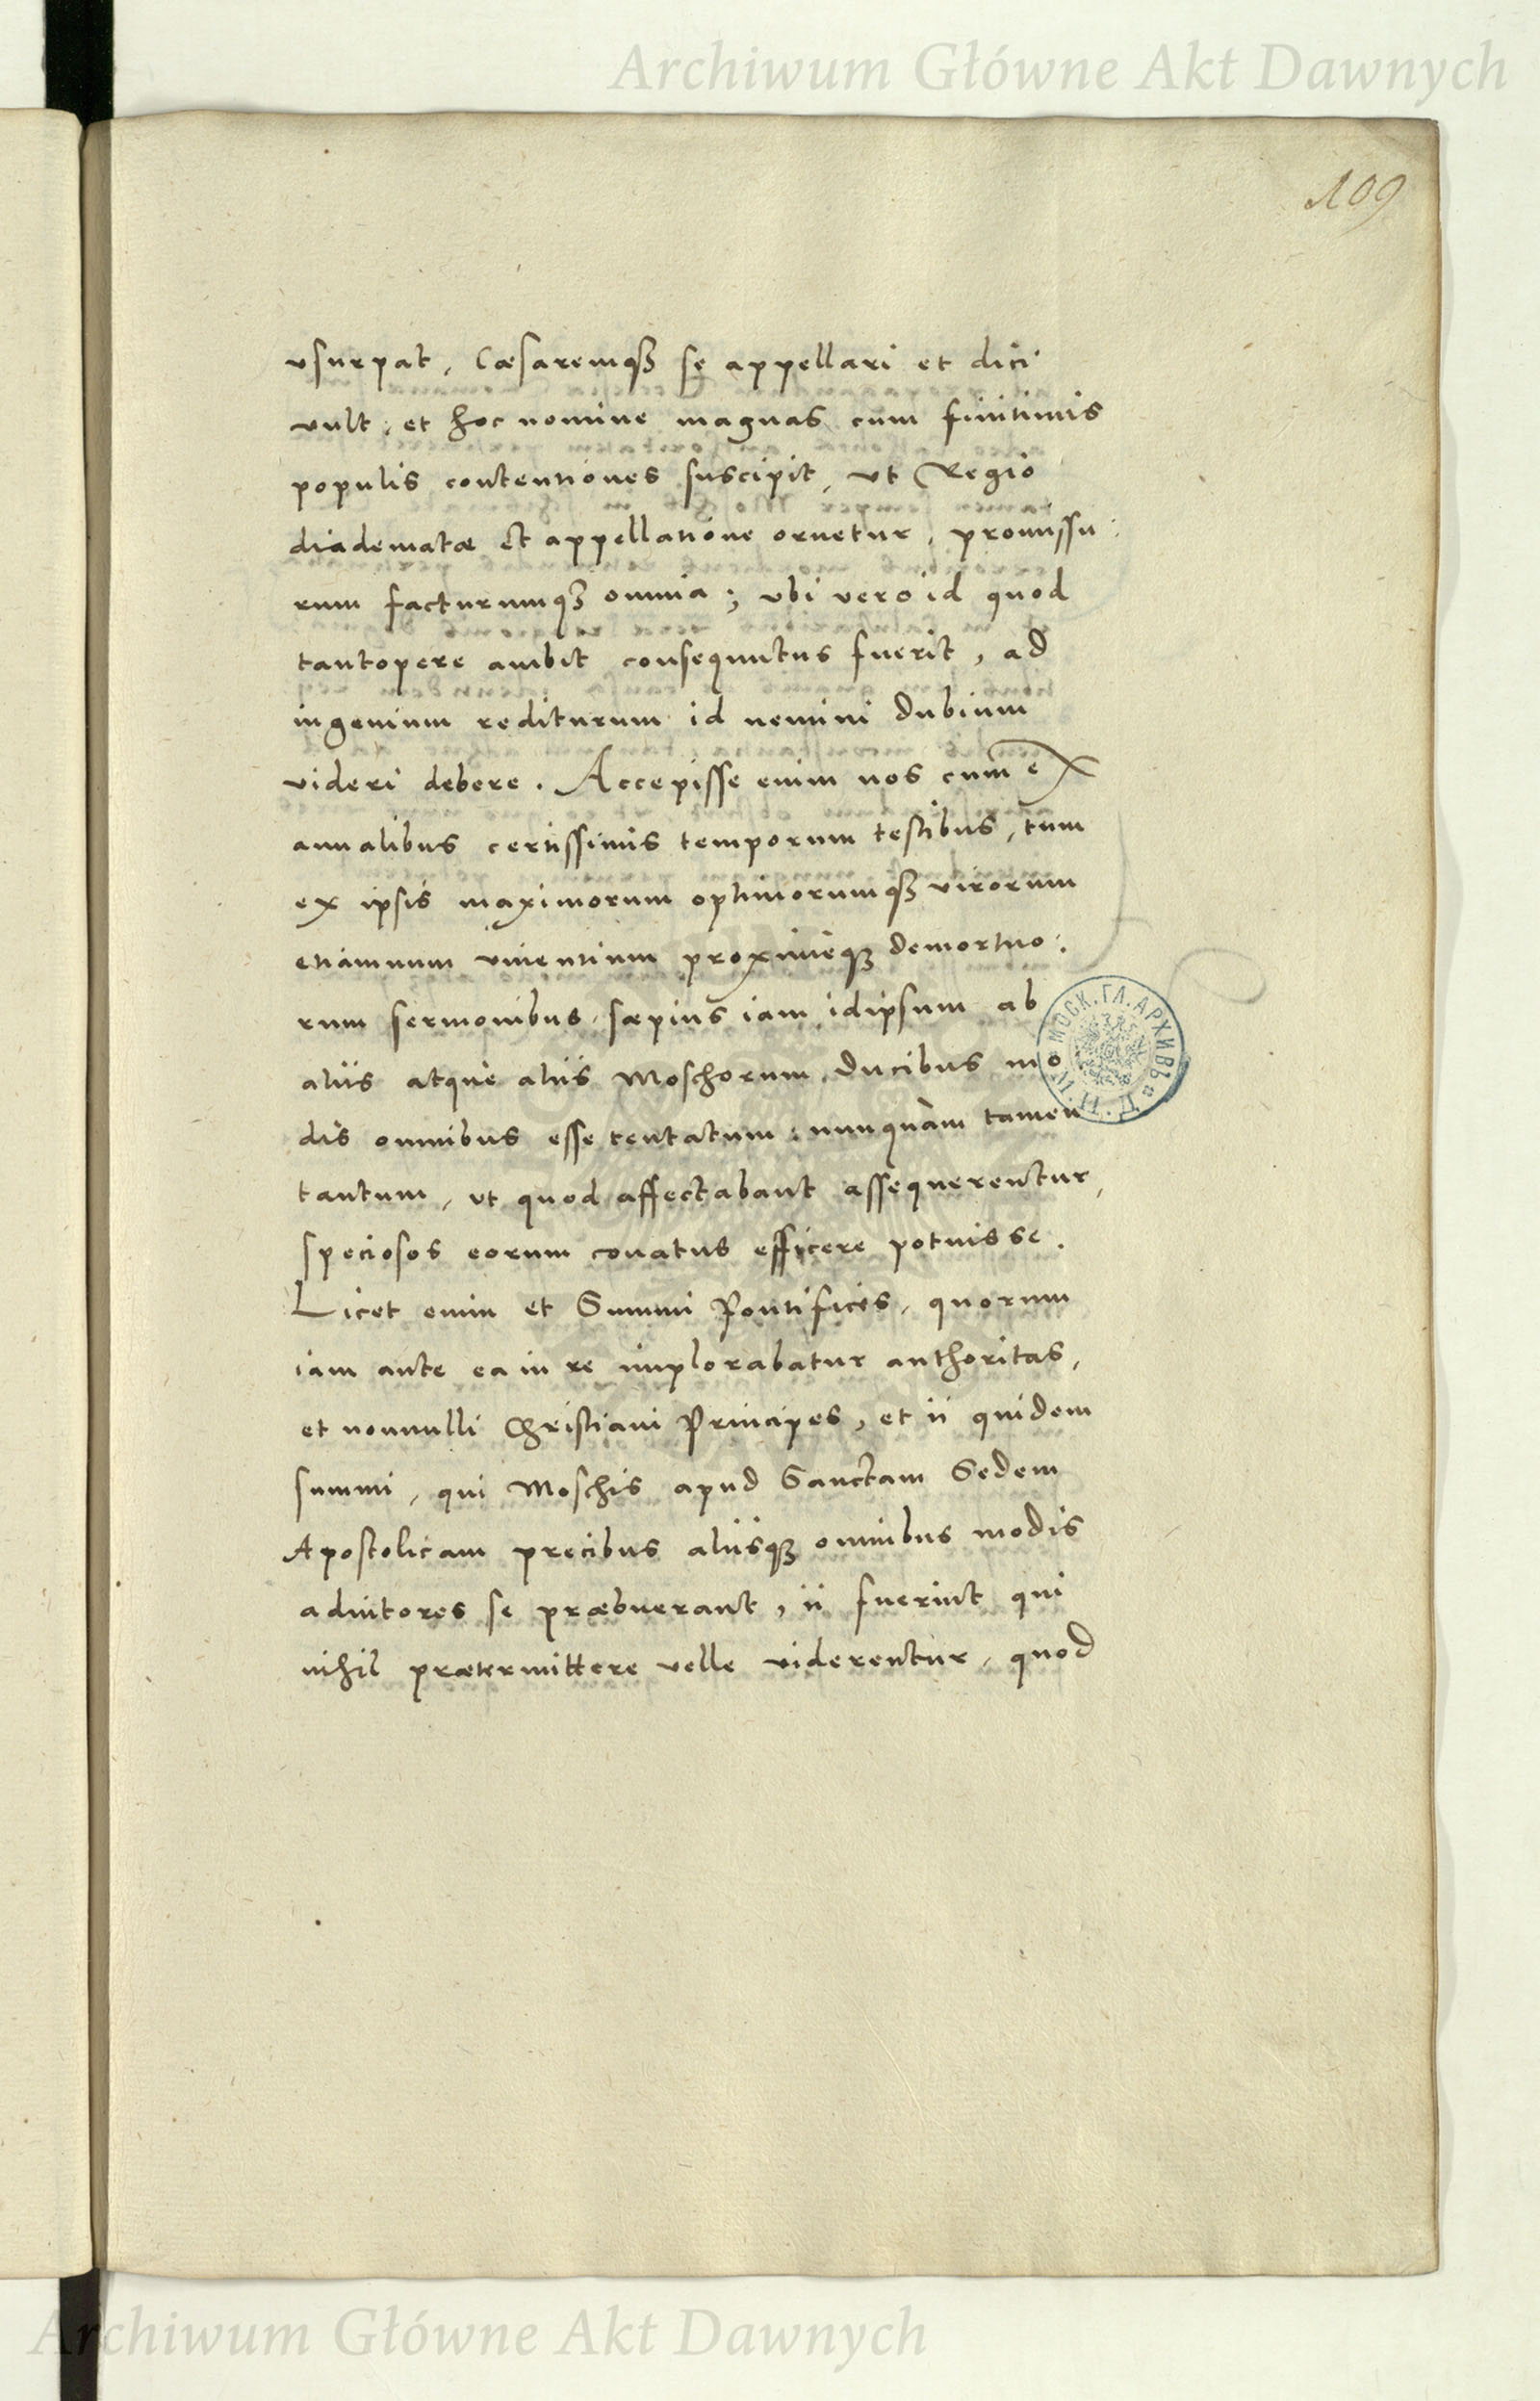 Archiwum Główne Akt Dawnych
109
vsurpat, Cæsaremq́ꝫ se appellari et dici
vult, et hoc nomine magnas cum finitimis
populis contentiones suscipit, vt Regio
diadematæ et appellatione ornetur, promissu:
rum facturumq́ꝫ omnia; vbi vero id quod
tantopere ambit consequutus fuerit, ad
ingenium rediturum id nemini dubium
videri debere. Accepisse enim nos cum ex
annalibus certissimis temporum testibus, tum
ex ipsis maximorum optimorumq́ꝫ virorum
etiamnum viuentium proximeqꝫ demortuo:
rum sermonibus, sæpius iam idipsum ab
aliis atque aliis Moschorum Ducibus mo
dis omnibus esse tentatum: nunquàm tamen
tantum, vt quod affectabant assequerentur,
speciosos eorum conatus efficere potuisse.
Licet enim et Summi Pontifices, quorum
iam ante ea in re implorabatur authoritas,
et nonnulli Christiani Principes, et ii quidem
summi, qui Moschis apud Sanctam Sedem
Apostolicam precibus aliisqꝫ omnibus modis
adiutores se præbuerant, ii fuerint qui
nihil prætermittere velle viderentur, quod
МОСК. ГЛ. АРХИВЪ
Archiwum Główne Akt Dawnych